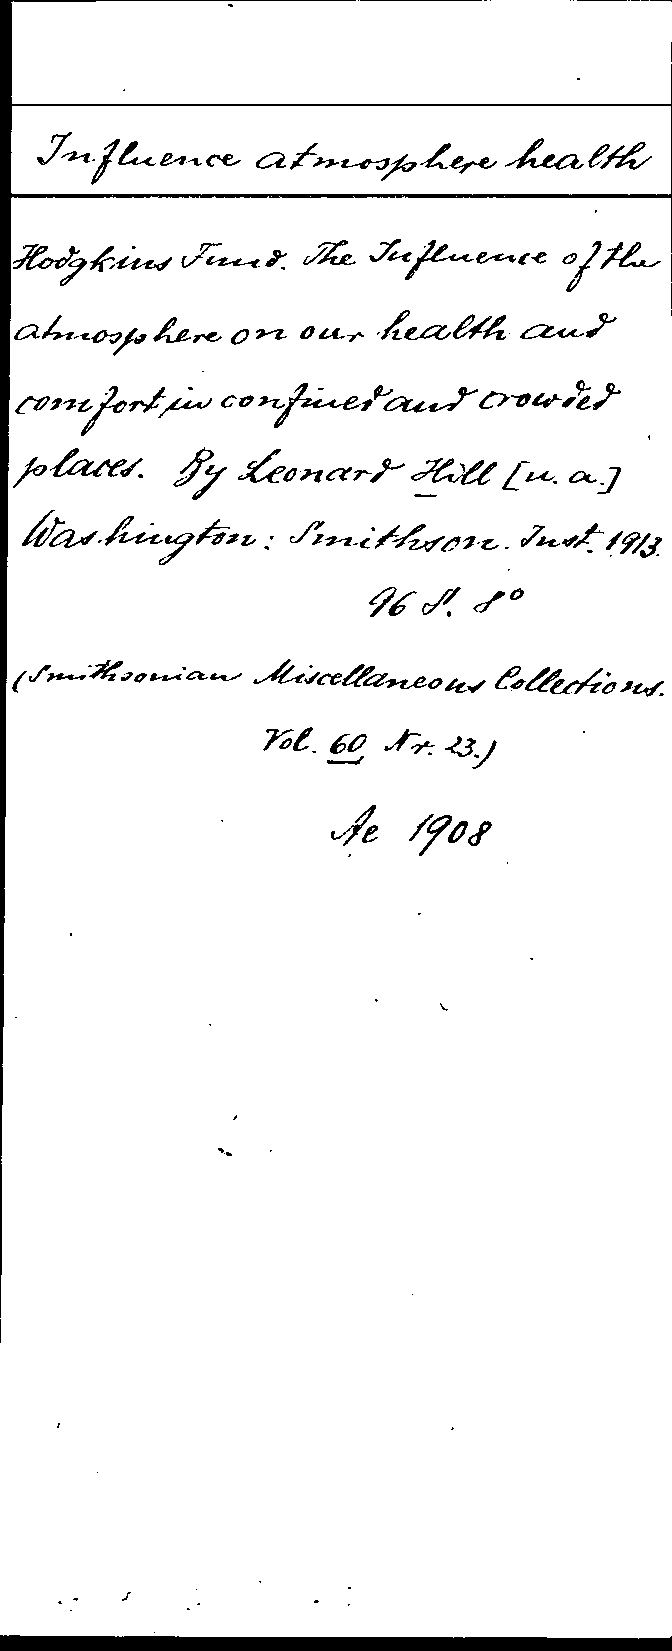 Influence atmosphere health
Hodgkins Fund. The Influence of the
atmosphere on our health and
comfort in confined and crowded
places. By Leonard Hill [u. a.]
Washington: Smithson. Inst. 1913.
96 S. 8°
(Smithsonian Miscellaneous Collections.
Vol. 60, Nr. 23.)
Ae 1908